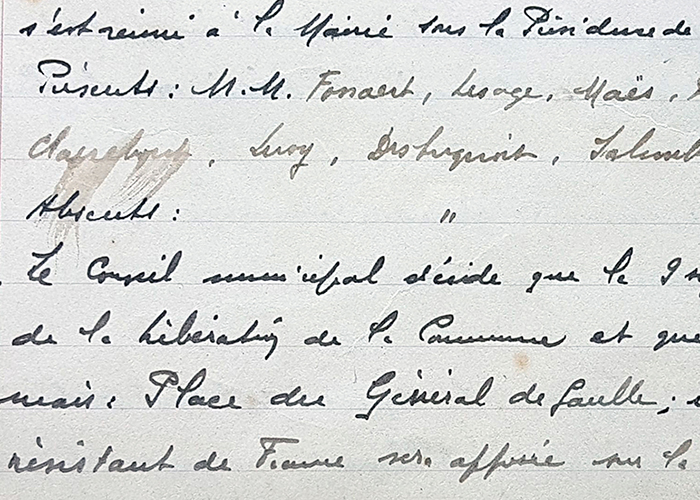 s'est réuni à la Mairie sous la Présidence de
Présents : M.M. Fossaert, Lesage, Maës,
Claeyebout, Leroy,
Absents : "
Le Conseil municipal décide que la
de la libération de la Commune et que
mais : Place du Général de Gaulle ;
résistant de France sera apposée sur la